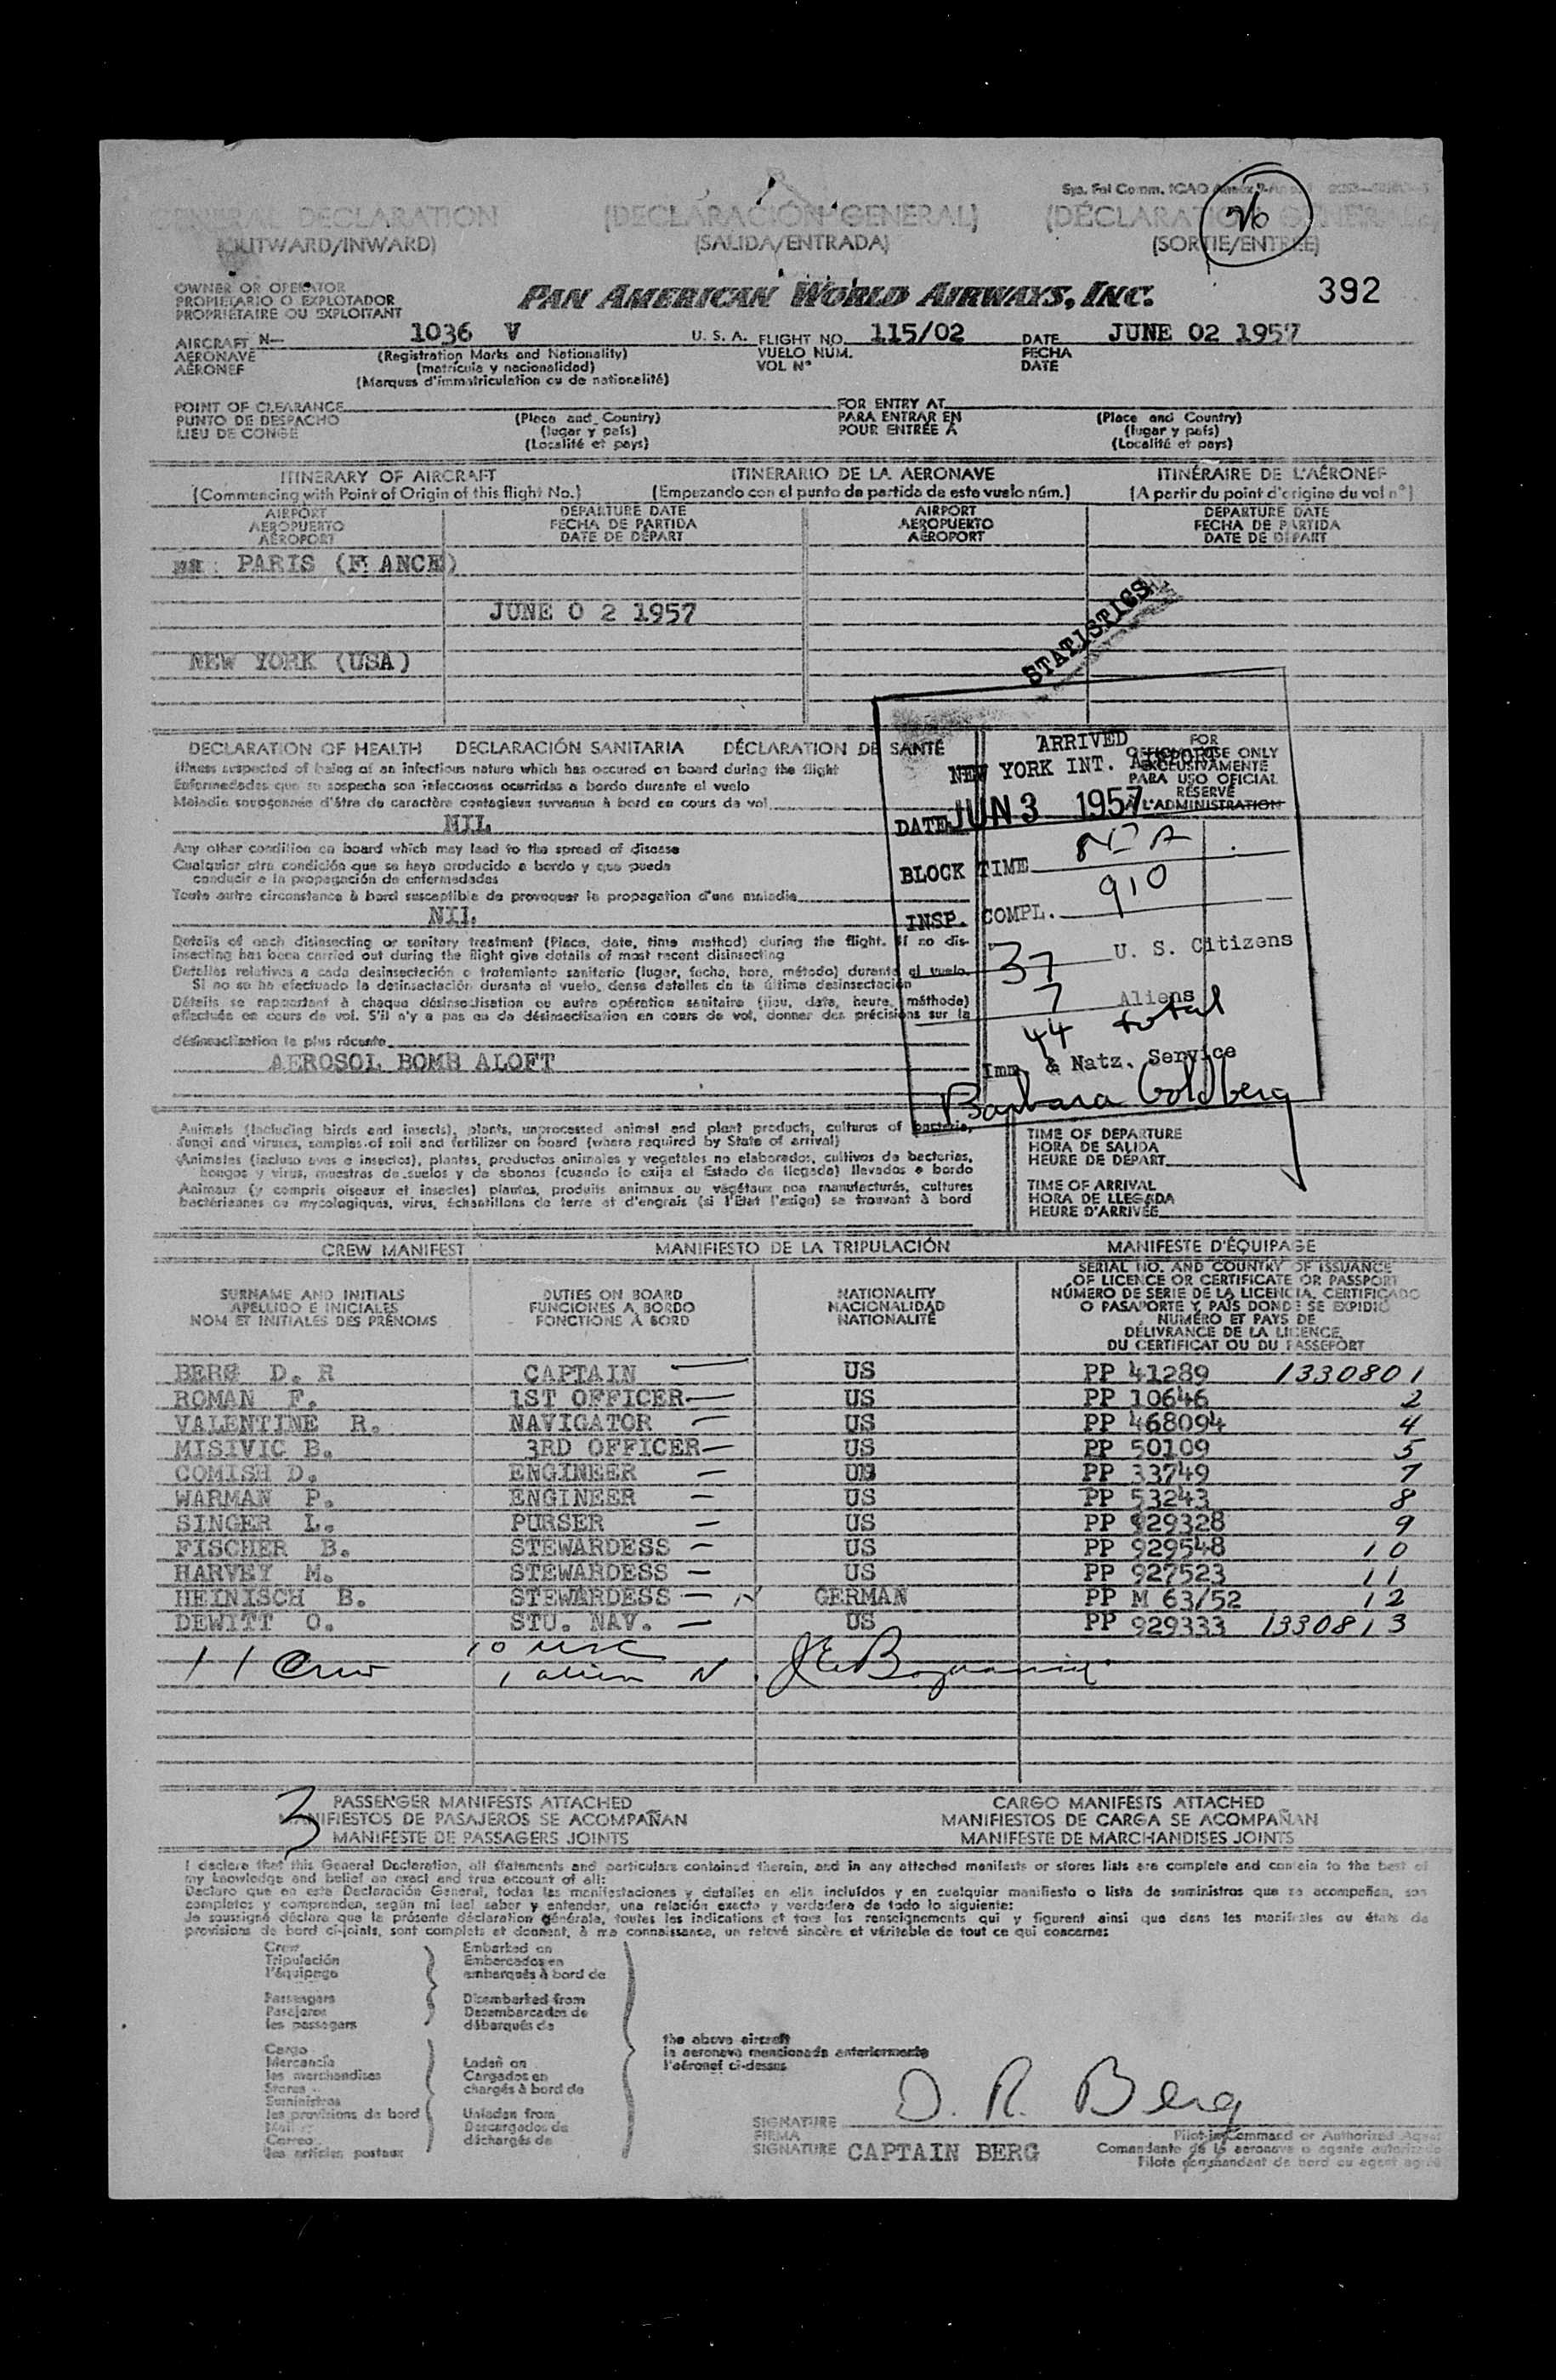 Sys. Fal Comm. ICAO Annex 9
GENERAL DECLARATION (DECLARACIÓN GENERAL) (DÉCLARATION GÉNÉRALE)
(OUTWARD/INWARD) (SALIDA/ENTRADA) (SORTIE/ENTRÉE)
26
OWNER OR OPERATOR
PROPIETARIO O EXPLOTADOR
PROPRIÉTAIRE OU EXPLOITANT
PAN AMERICAN WORLD AIRWAYS, INC.
392
AIRCRAFT N— 1036 V U. S. A. FLIGHT NO. 115/02 DATE JUNE 02 1957
AERONAVE (Registration Marks and Nationality) VUELO NUM. FECHA
AÉRONEF (matrícula y nacionalidad) VOL N° DATE
(Marques d'immatriculation ou de nationalité)
POINT OF CLEARANCE FOR ENTRY AT
PUNTO DE DESPACHO (Place and Country) PARA ENTRAR EN (Place and Country)
LIEU DE CONGÉ (lugar y país) POUR ENTRÉE À (lugar y país)
(Localité et pays) (Localité et pays)
ITINERARY OF AIRCRAFT ITINERARIO DE LA AERONAVE ITINÉRAIRE DE L'AÉRONEF
(Commencing with Point of Origin of this flight No.) (Empezando con el punto de partida de este vuelo núm.) (A partir du point d'origine du vol n°)
AIRPORT DEPARTURE DATE AIRPORT DEPARTURE DATE
AEROPUERTO FECHA DE PARTIDA AEROPUERTO FECHA DE PARTIDA
AÉROPORT DATE DE DÉPART AÉROPORT DATE DE DÉPART
PARIS (F ANCE)
JUNE 0 2 1957
STATISTICS
NEW YORK (USA)
DECLARATION OF HEALTH DECLARACIÓN SANITARIA DÉCLARATION DE SANTÉ
Illness suspected of being of an infectious nature which has occured on board during the flight
Enfermedades que se sospecha son infecciosas ocurridas a bordo durante el vuelo
Maladie soupçonnée d'être de caractère contagieux survenue à bord en cours de vol
NIL
Any other condition on board which may lead to the spread of disease
Cualquier otra condición que se haya producido a bordo y que pueda
conducir a la propagación de enfermedades
Toute autre circonstance à bord susceptible de provoquer la propagation d'une maladie
NIL
Details of each disinsecting or sanitary treatment (Place, date, time method) during the flight. If no dis-
insecting has been carried out during the flight give details of most recent disinsecting
Detalles relativos a cada desinsectación o tratamiento sanitario (lugar, fecha, hora, método) durante el vuelo.
Si no se ha efectuado la desinsectación durante el vuelo, dense detalles de la última desinsectación
Détails se rapportant à chaque désinsectisation ou autre opération sanitaire (lieu, date, heure, méthode)
effectuée en cours de vol. S'il n'y a pas eu de désinsectisation en cours de vol, donner des précisions sur la
désinsectisation la plus récente
AEROSOL BOMB ALOFT
FOR
OFFICIAL USE ONLY
EXCLUSIVAMENTE
PARA USO OFICIAL
RÉSERVÉ
À L'ADMINISTRATION
ARRIVED
NEW YORK INT. AIRPORT
DATE JUN 3 1957
BLOCK TIME
INSP. COMPL. 910
37 U. S. Citizens
7 Aliens
44 total
Imm. & Natz. Service
Barbara Goldberg
Animals (including birds and insects), plants, unprocessed animal and plant products, cultures of bacteria,
fungi and viruses, samples of soil and fertilizer on board (where required by State of arrival)
Animales (incluso aves e insectos), plantas, productos animales y vegetales no elaborados, cultivos de bacterias,
hongos y virus, muestras de suelos y de abonos (cuando lo exija el Estado de llegada) llevados a bordo
Animaux (y compris oiseaux et insectes) plantes, produits animaux ou végétaux non manufacturés, cultures
bactériennes ou mycologiques, virus, échantillons de terre et d'engrais (si l'État l'exige) se trouvant à bord
TIME OF DEPARTURE
HORA DE SALIDA
HEURE DE DÉPART
TIME OF ARRIVAL
HORA DE LLEGADA
HEURE D'ARRIVÉE
CREW MANIFEST MANIFIESTO DE LA TRIPULACIÓN MANIFESTE D'ÉQUIPAGE
SURNAME AND INITIALS
APELLIDO E INICIALES
NOM ET INITIALES DES PRÉNOMS
DUTIES ON BOARD
FUNCIONES A BORDO
FONCTIONS À BORD
NATIONALITY
NACIONALIDAD
NATIONALITÉ
SERIAL NO. AND COUNTRY OF ISSUANCE
OF LICENCE OR CERTIFICATE OR PASSPORT
NÚMERO DE SERIE DE LA LICENCIA, CERTIFICADO
O PASAPORTE Y PAÍS DONDE SE EXPIDIÓ
NUMÉRO ET PAYS DE
DÉLIVRANCE DE LA LICENCE,
DU CERTIFICAT OU DU PASSEPORT
BERG D. R CAPTAIN — US PP 41289 1330801
ROMAN F. 1ST OFFICER — US PP 10646 2
VALENTINE R. NAVIGATOR — US PP 468094 4
MISIVIC B. 3RD OFFICER — US PP 50109 5
COMISH D. ENGINEER — US PP 33749 7
WARMAN P. ENGINEER — US PP 53243 8
SINGER L. PURSER — US PP 929328 9
FISCHER B. STEWARDESS — US PP 929548 10
HARVEY M. STEWARDESS — US PP 927523 11
HEINISCH B. STEWARDESS — N GERMAN PP M 63/52 12
DEWITT O. STU. NAV. — US PP 929333 1330813
11 Crew 10 USC
1 alien N
3
PASSENGER MANIFESTS ATTACHED CARGO MANIFESTS ATTACHED
MANIFIESTOS DE PASAJEROS SE ACOMPAÑAN MANIFIESTOS DE CARGA SE ACOMPAÑAN
MANIFESTE DE PASSAGERS JOINTS MANIFESTE DE MARCHANDISES JOINTS
I declare that this General Declaration, all statements and particulars contained therein, and in any attached manifests or stores lists are complete and contain to the best of
my knowledge and belief an exact and true account of all:
Declaro que en esta Declaración General, todas las manifestaciones y detalles en ella incluídos y en cualquier manifiesto o lista de suministros que se acompañen, son
completos y comprenden, según mi leal saber y entender, una relación exacta y verdadera de todo lo siguiente:
Je soussigné déclare que la présente déclaration générale, toutes les indications et tous les renseignements qui y figurent ainsi que dans les manifestes ou états de
provisions de bord ci-joints, sont complets et donnent, à ma connaissance, un relevé sincère et véritable de tout ce qui concerne:
Crew Embarked on
Tripulación Embarcados en
l'équipage embarqués à bord de
Passengers Disembarked from
Pasajeros Desembarcados de
les passagers débarqués de
the above aircraft
la aeronave mencionada anteriormente
l'aéronef ci-dessus
Cargo
Mercancía Laden on
les marchandises Cargados en
Stores chargés à bord de
Suministros
les provisions de bord Unladen from
Mail Descargados de
Correo déchargés de
les articles postaux
D. R. Berg
SIGNATURE
FIRMA
SIGNATURE CAPTAIN BERG
Pilot-in-Command or Authorized Agent
Comandante de la aeronave o agente autorizado
Pilote commandant de bord ou agent agréé